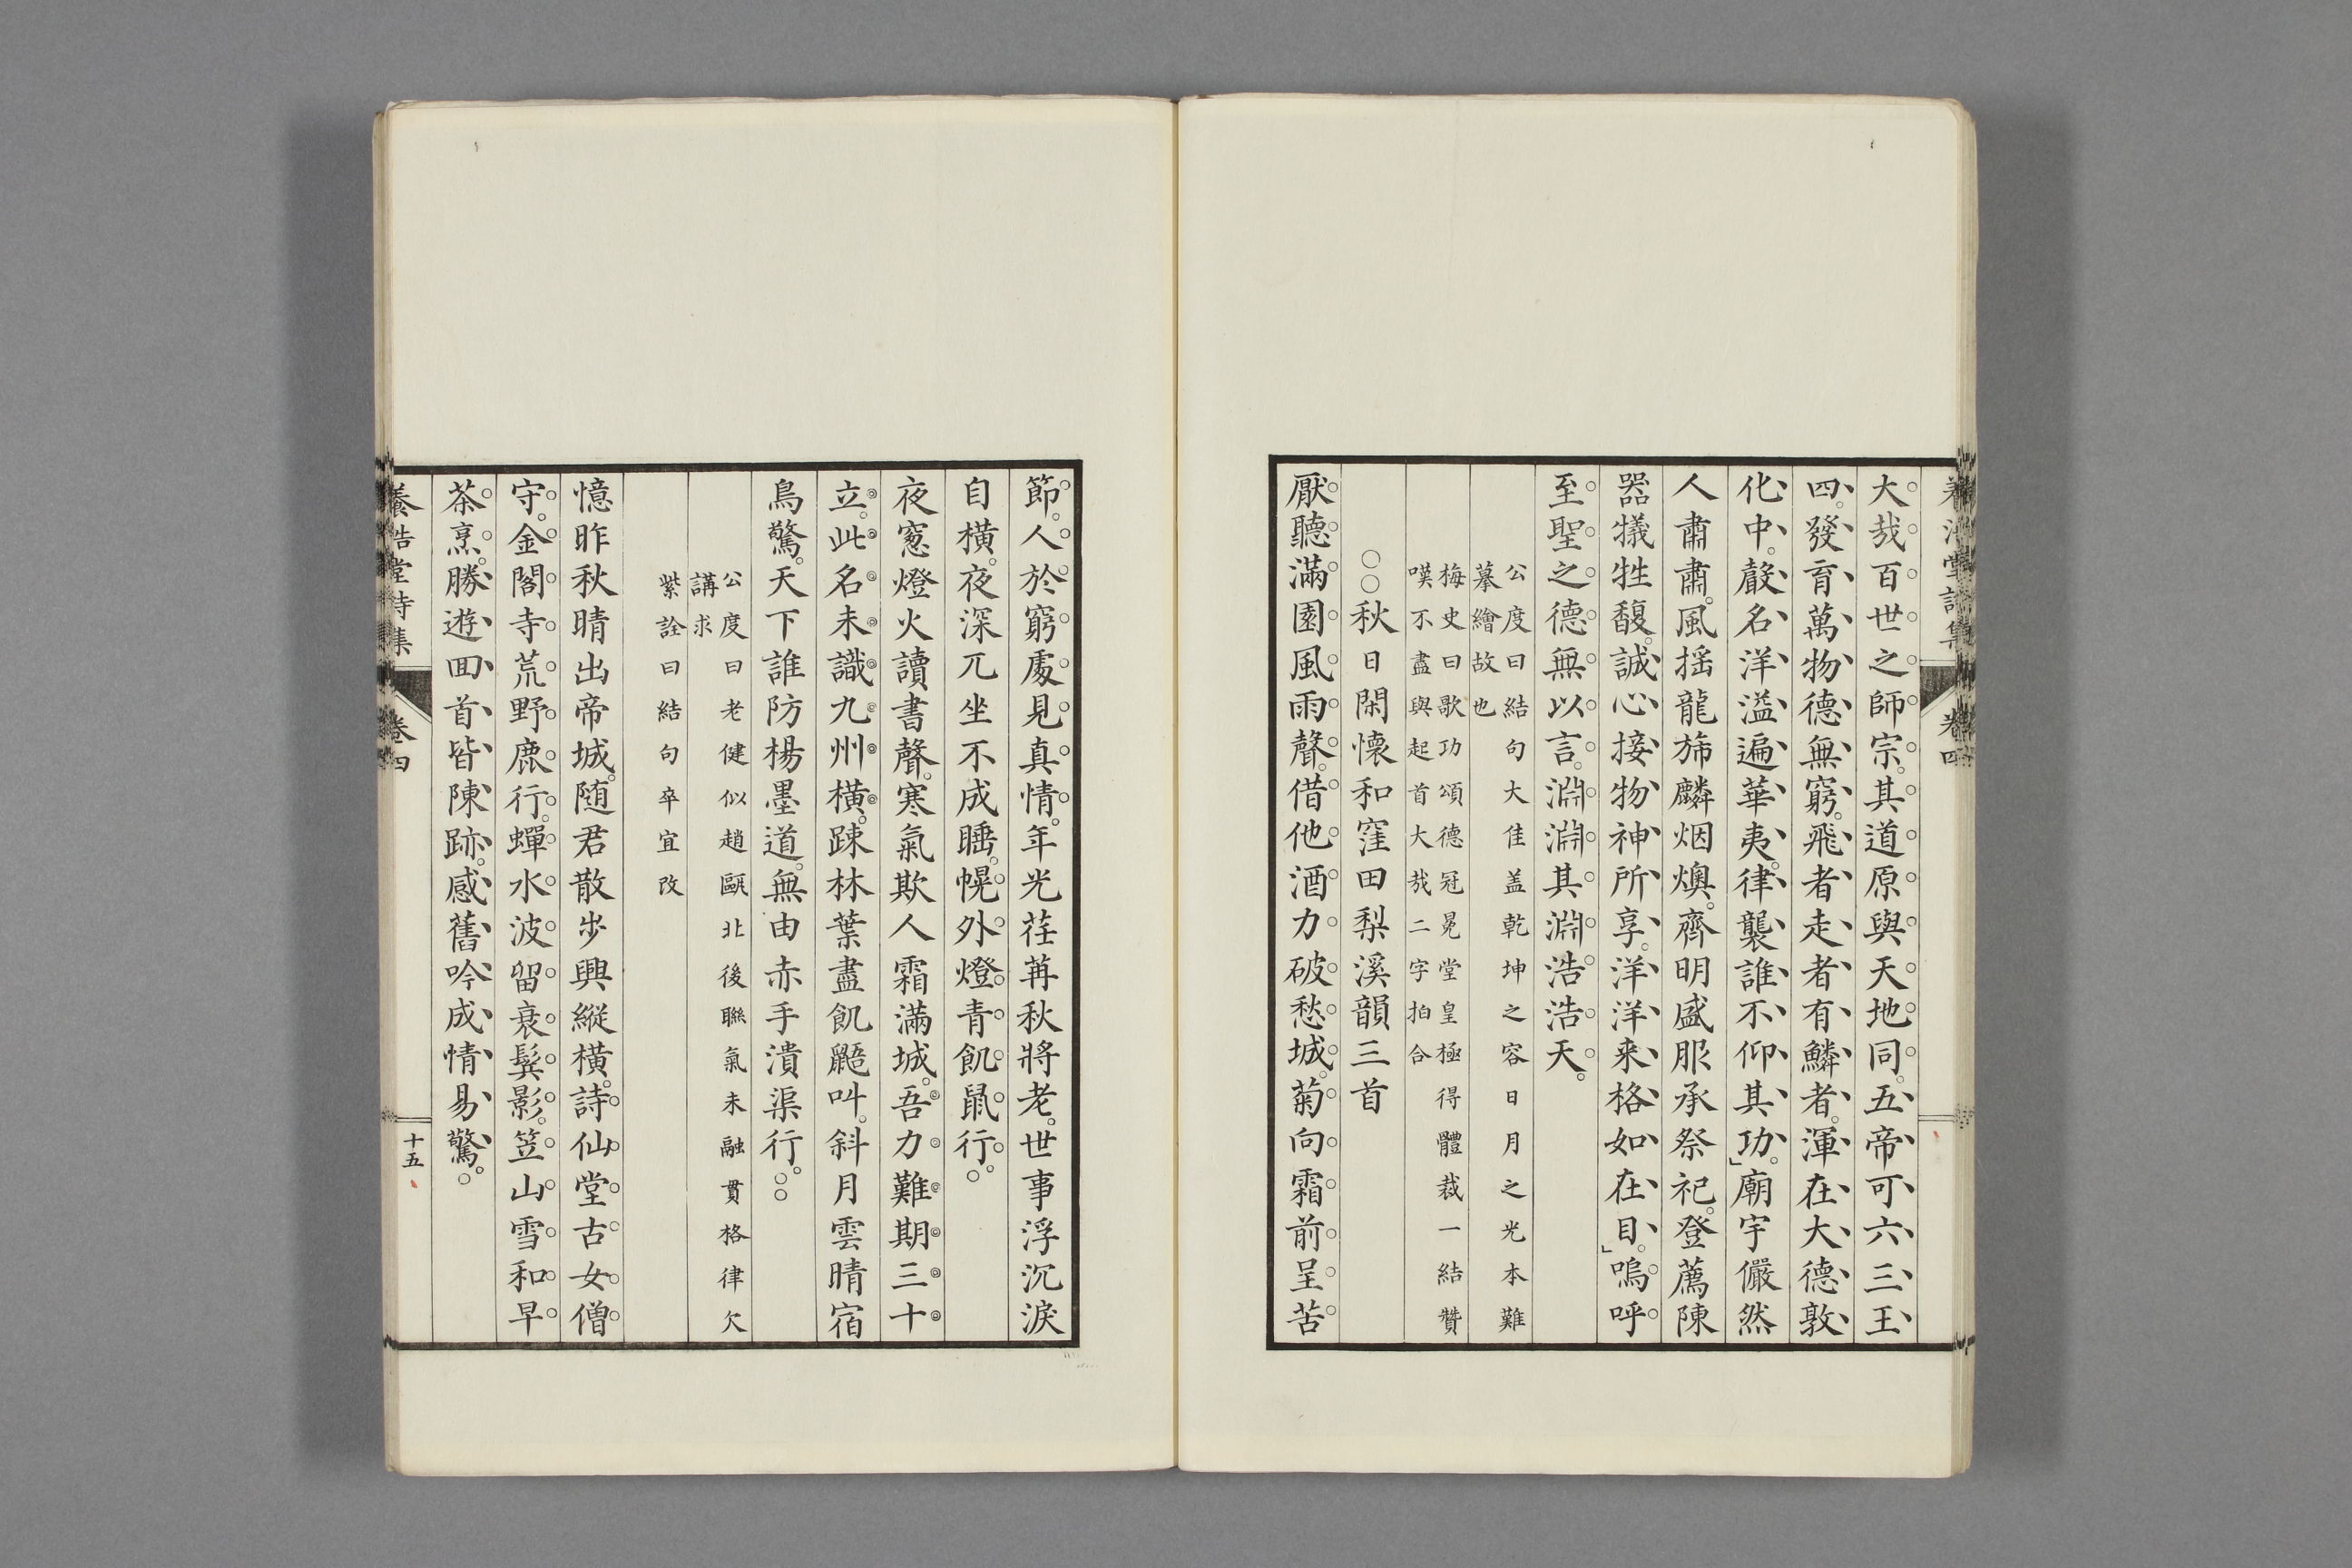 大哉百世之師宗。其道原與天地同。五帝可六三王
四。發育萬物德無窮。飛者走者有鱗者。渾在大德敦
化中。聲名洋溢遍華夷。律襲誰不仰其功。」廟宇儼然
人肅肅。風揺龍旆麟烟燠。齊明盛服承祭祀。登薦陳
器犠牲馥。誠心接物神所享。洋洋来格如在目。」嗚呼
至聖之德無以言。淵淵其淵浩浩天。
公度曰結句大佳盖乾坤之容日月之光本難
摹繪故也
梅史曰歌功頌德冠冕堂皇極得體裁一結贊
嘆不盡與起首大哉二字拍合
○○秋日閑懷和窪田梨溪韻三首
厭聽滿園風雨聲。借他酒力破愁城。菊向霜前呈苦
節。人於窮處見真情。年光荏苒秋將老。世事浮沉淚
自橫。夜深兀坐不成睡。幌外燈青飢鼠行。○
夜窻燈火讀書聲。寒氣欺人霜滿城。吾力難期三十
立。此名未識九州橫。踈林葉盡飢鼯叫。斜月雲晴宿
鳥驚。天下誰防楊墨道。無由赤手潰渠行。○○
公度曰老健似趙甌北後聯氣未融貫格律欠
講求
紫詮曰結句卒宜改
憶昨秋晴出帝城。随君散步興縱橫。詩仙堂古女僧
守。金閣寺荒野鹿行。蟬水波留衰鬢影。笠山雪和早
茶烹。勝遊回首皆陳跡。感舊吟成情易驚。○
養浩堂詩集
卷四
十五